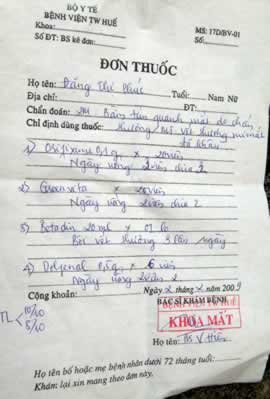 BỘ Y TẾ
BỆNH VIỆN TW HUẾ
MS: 17D/BV-01
Khoa:
Số ĐT: BS kê đơn:
ĐƠN THUỐC
Họ tên: Đặng Thị Phúc Tuổi: Nam Nữ
Địa chỉ: ĐT:
Chẩn đoán: quanh mắt do chấn
Chỉ định dùng thuốc: thương / vết thương mi mắt
1)
Ngày uống 2 viên chia 2
2) x 20 viên
Ngày uống 2 viên chia 2
3) Betadin 20 ml x 01 lọ
Bôi vết thương 3 lần ngày
4) x 6 viên
Ngày uống 2 viên 2
Cộng khoản: Ngày 2 tháng 2 năm 2009
BÁC SĨ KHÁM BỆNH
BỆNH VIỆN TW HUẾ
KHOA MẮT
TL 10/10
Họ tên: BS Hiền
Họ tên bố hoặc mẹ bệnh nhân dưới 72 tháng tuổi:
Khám lại xin mang theo đơn này.